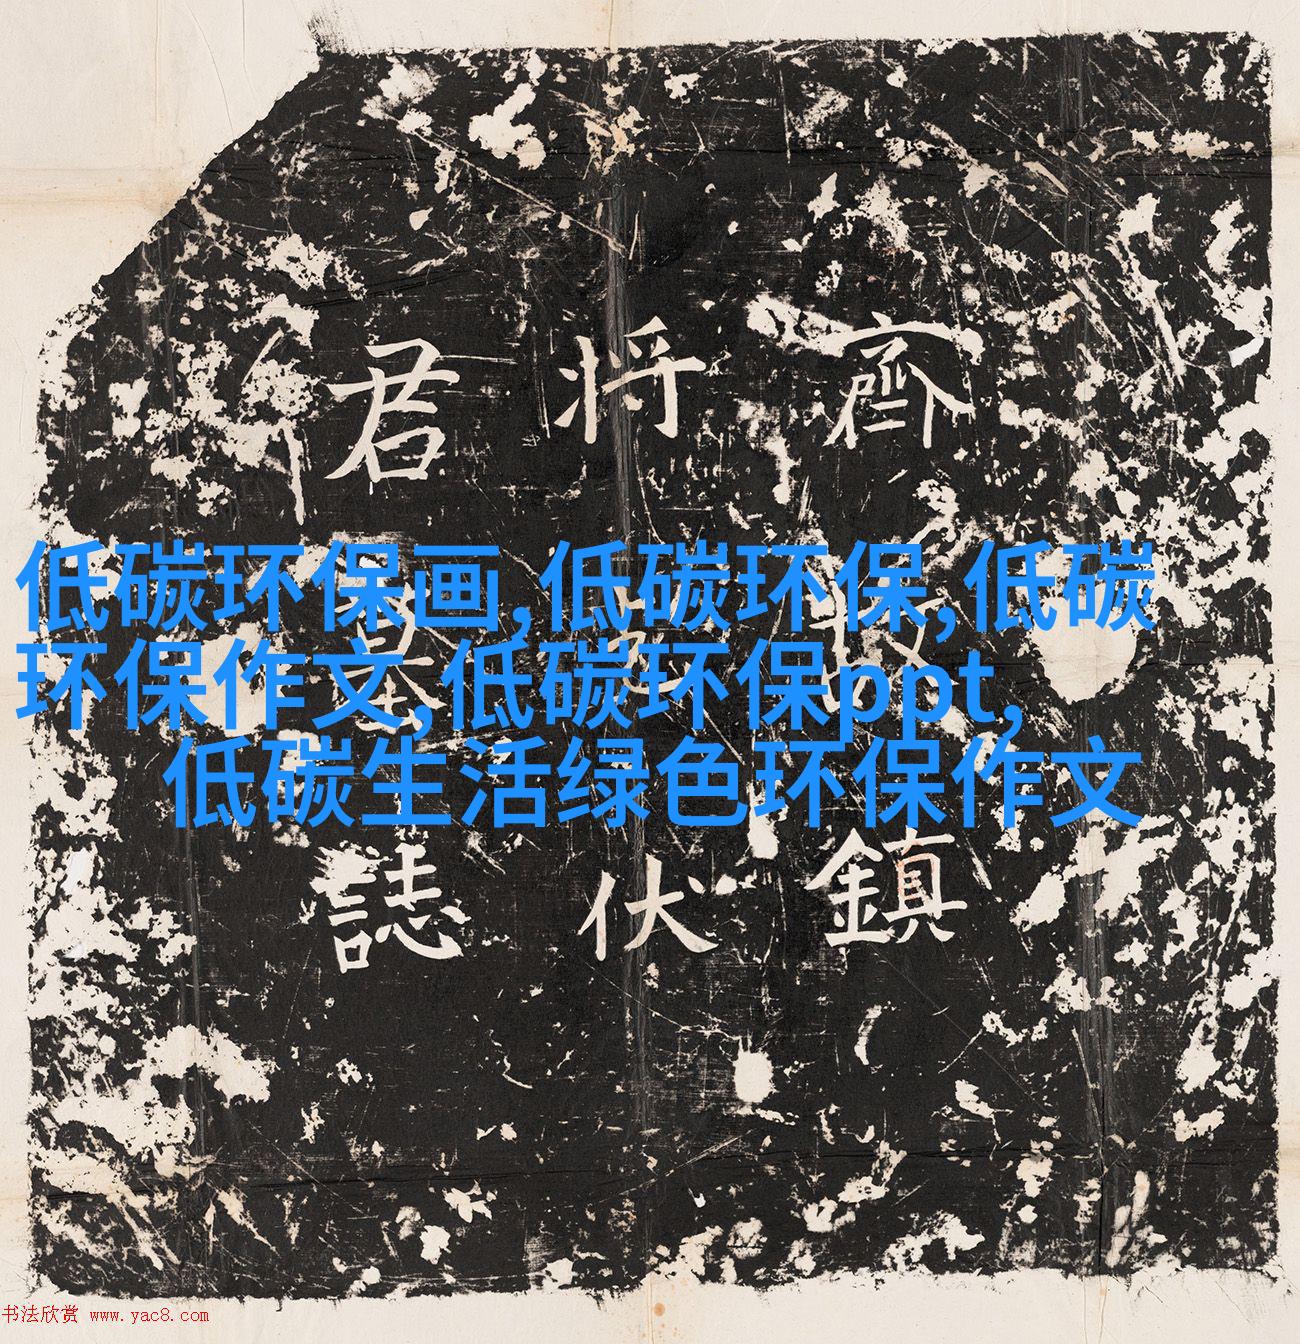 低碳环保画,低碳环保,低碳
环保作文,低碳环保ppt,
低碳生活绿色环保作文
齊故鎮
将伏
君墓誌
书法欣赏 www.yac8.com